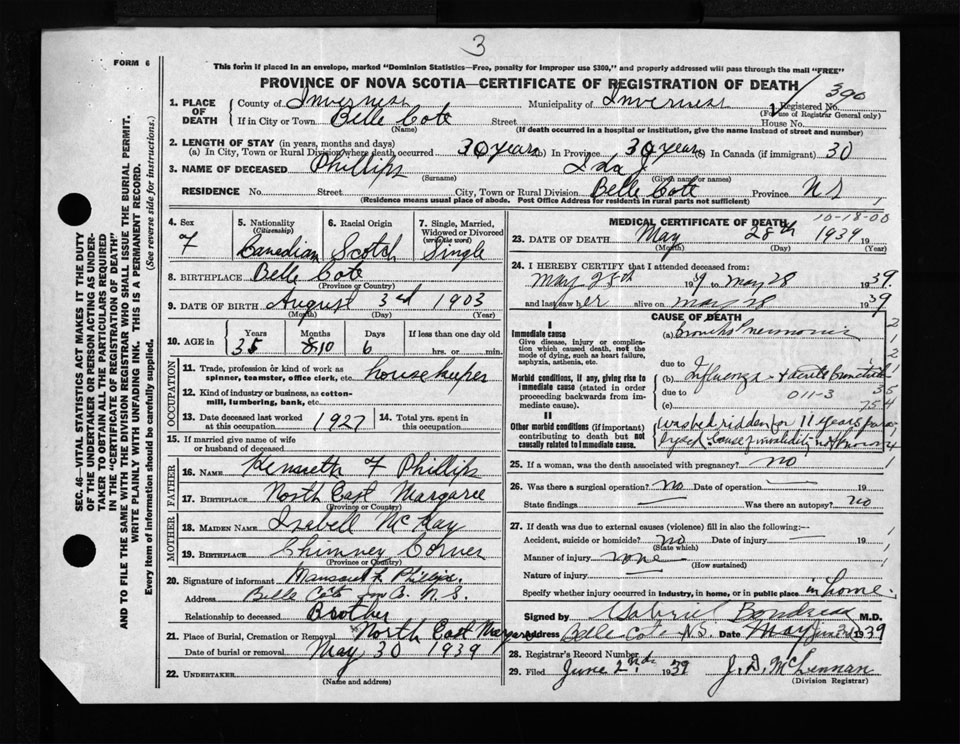 3
FORM 6
This form if placed in an envelope, marked "Dominion Statistics—Free, penalty for improper use $300," and properly addressed will pass through the mail "FREE"
PROVINCE OF NOVA SCOTIA—CERTIFICATE OF REGISTRATION OF DEATH
SEC. 46—VITAL STATISTICS ACT MAKES IT THE DUTY
OF THE UNDERTAKER OR PERSON ACTING AS UNDER-
TAKER TO OBTAIN ALL THE PARTICULARS REQUIRED
IN THE "CERTIFICATE OF REGISTRATION OF DEATH"
AND TO FILE THE SAME WITH THE DIVISION REGISTRAR WHO SHALL ISSUE THE BURIAL PERMIT.
WRITE PLAINLY WITH UNFADING INK. THIS IS A PERMANENT RECORD.
Every item of information should be carefully supplied. (See reverse side for instructions.)
1. PLACE OF DEATH County of Inverness Municipality of Inverness Registered No. 390
(For use of Registrar General only)
If in City or Town Belle Cote Street House No.
(Name) (If death occurred in a hospital or institution, give the name instead of street and number)
2. LENGTH OF STAY (in years, months and days)
(a) In City, Town or Rural Division where death occurred 30 years (b) In Province 30 years (c) In Canada (if immigrant) 30
3. NAME OF DECEASED Phillips Ida J
(Surname) (Given name or names)
RESIDENCE No. Street City, Town or Rural Division Belle Cote Province N S
(Residence means usual place of abode. Post Office Address for residents in rural parts not sufficient)
4. Sex 5. Nationality (Citizenship) 6. Racial Origin 7. Single, Married, Widowed or Divorced (write the word)
F Canadian Scotch Single
8. BIRTHPLACE Belle Cote
(Province or Country)
9. DATE OF BIRTH August 3rd 1903
(Month) (Day) (Year)
10. AGE in Years Months Days If less than one day old
35 10 6 hrs. or min.
OCCUPATION
11. Trade, profession or kind of work as spinner, teamster, office clerk, etc. housekeeper
12. Kind of industry or business, as cotton-mill, lumbering, bank, etc.
13. Date deceased last worked at this occupation 1927 14. Total yrs. spent in this occupation
15. If married give name of wife or husband of deceased
FATHER
16. NAME Kenneth F Phillips
17. BIRTHPLACE North East Margaree
(Province or Country)
MOTHER
18. MAIDEN NAME Isabell McKay
19. BIRTHPLACE Chimney Corner
(Province or Country)
20. Signature of informant Phillips
Address Belle Cote N. S.
Relationship to deceased Brother
21. Place of Burial, Cremation or Removal North East Margaree
Date of burial or removal May 30 1939
22. UNDERTAKER
(Name and address)
MEDICAL CERTIFICATE OF DEATH 10-18-00
23. DATE OF DEATH May 28th 1939 19
(Month) (Day) (Year)
24. I HEREBY CERTIFY that I attended deceased from:
May 25th 19 to May 28 1939
and last saw her alive on May 28 1939
CAUSE OF DEATH
I
Immediate cause
Give disease, injury or complication which caused death, not the mode of dying, such as heart failure, asphyxia, asthenia, etc.
(a) Broncho Pneumonia
due to
Morbid conditions, if any, giving rise to immediate cause (stated in order proceeding backwards from immediate cause).
(b) Influenza + acute Bronchitis
due to 011-3
(c)
II
Other morbid conditions (if important) contributing to death but not causally related to immediate cause.
was bed ridden for 11 years
cause of invalidity not known
25. If a woman, was the death associated with pregnancy? no
26. Was there a surgical operation? no Date of operation — 19
State findings — Was there an autopsy? no
27. If death was due to external causes (violence) fill in also the following:—
Accident, suicide or homicide? no Date of injury — 19
(State which)
Manner of injury none
(How sustained)
Nature of injury —
Specify whether injury occurred in industry, in home, or in public place in home
Signed by Gabriel M.D.
Address Belle Cote N.S. Date 1939
28. Registrar's Record Number
29. Filed June 2nd 1939 J. D. McLennan
(Division Registrar)